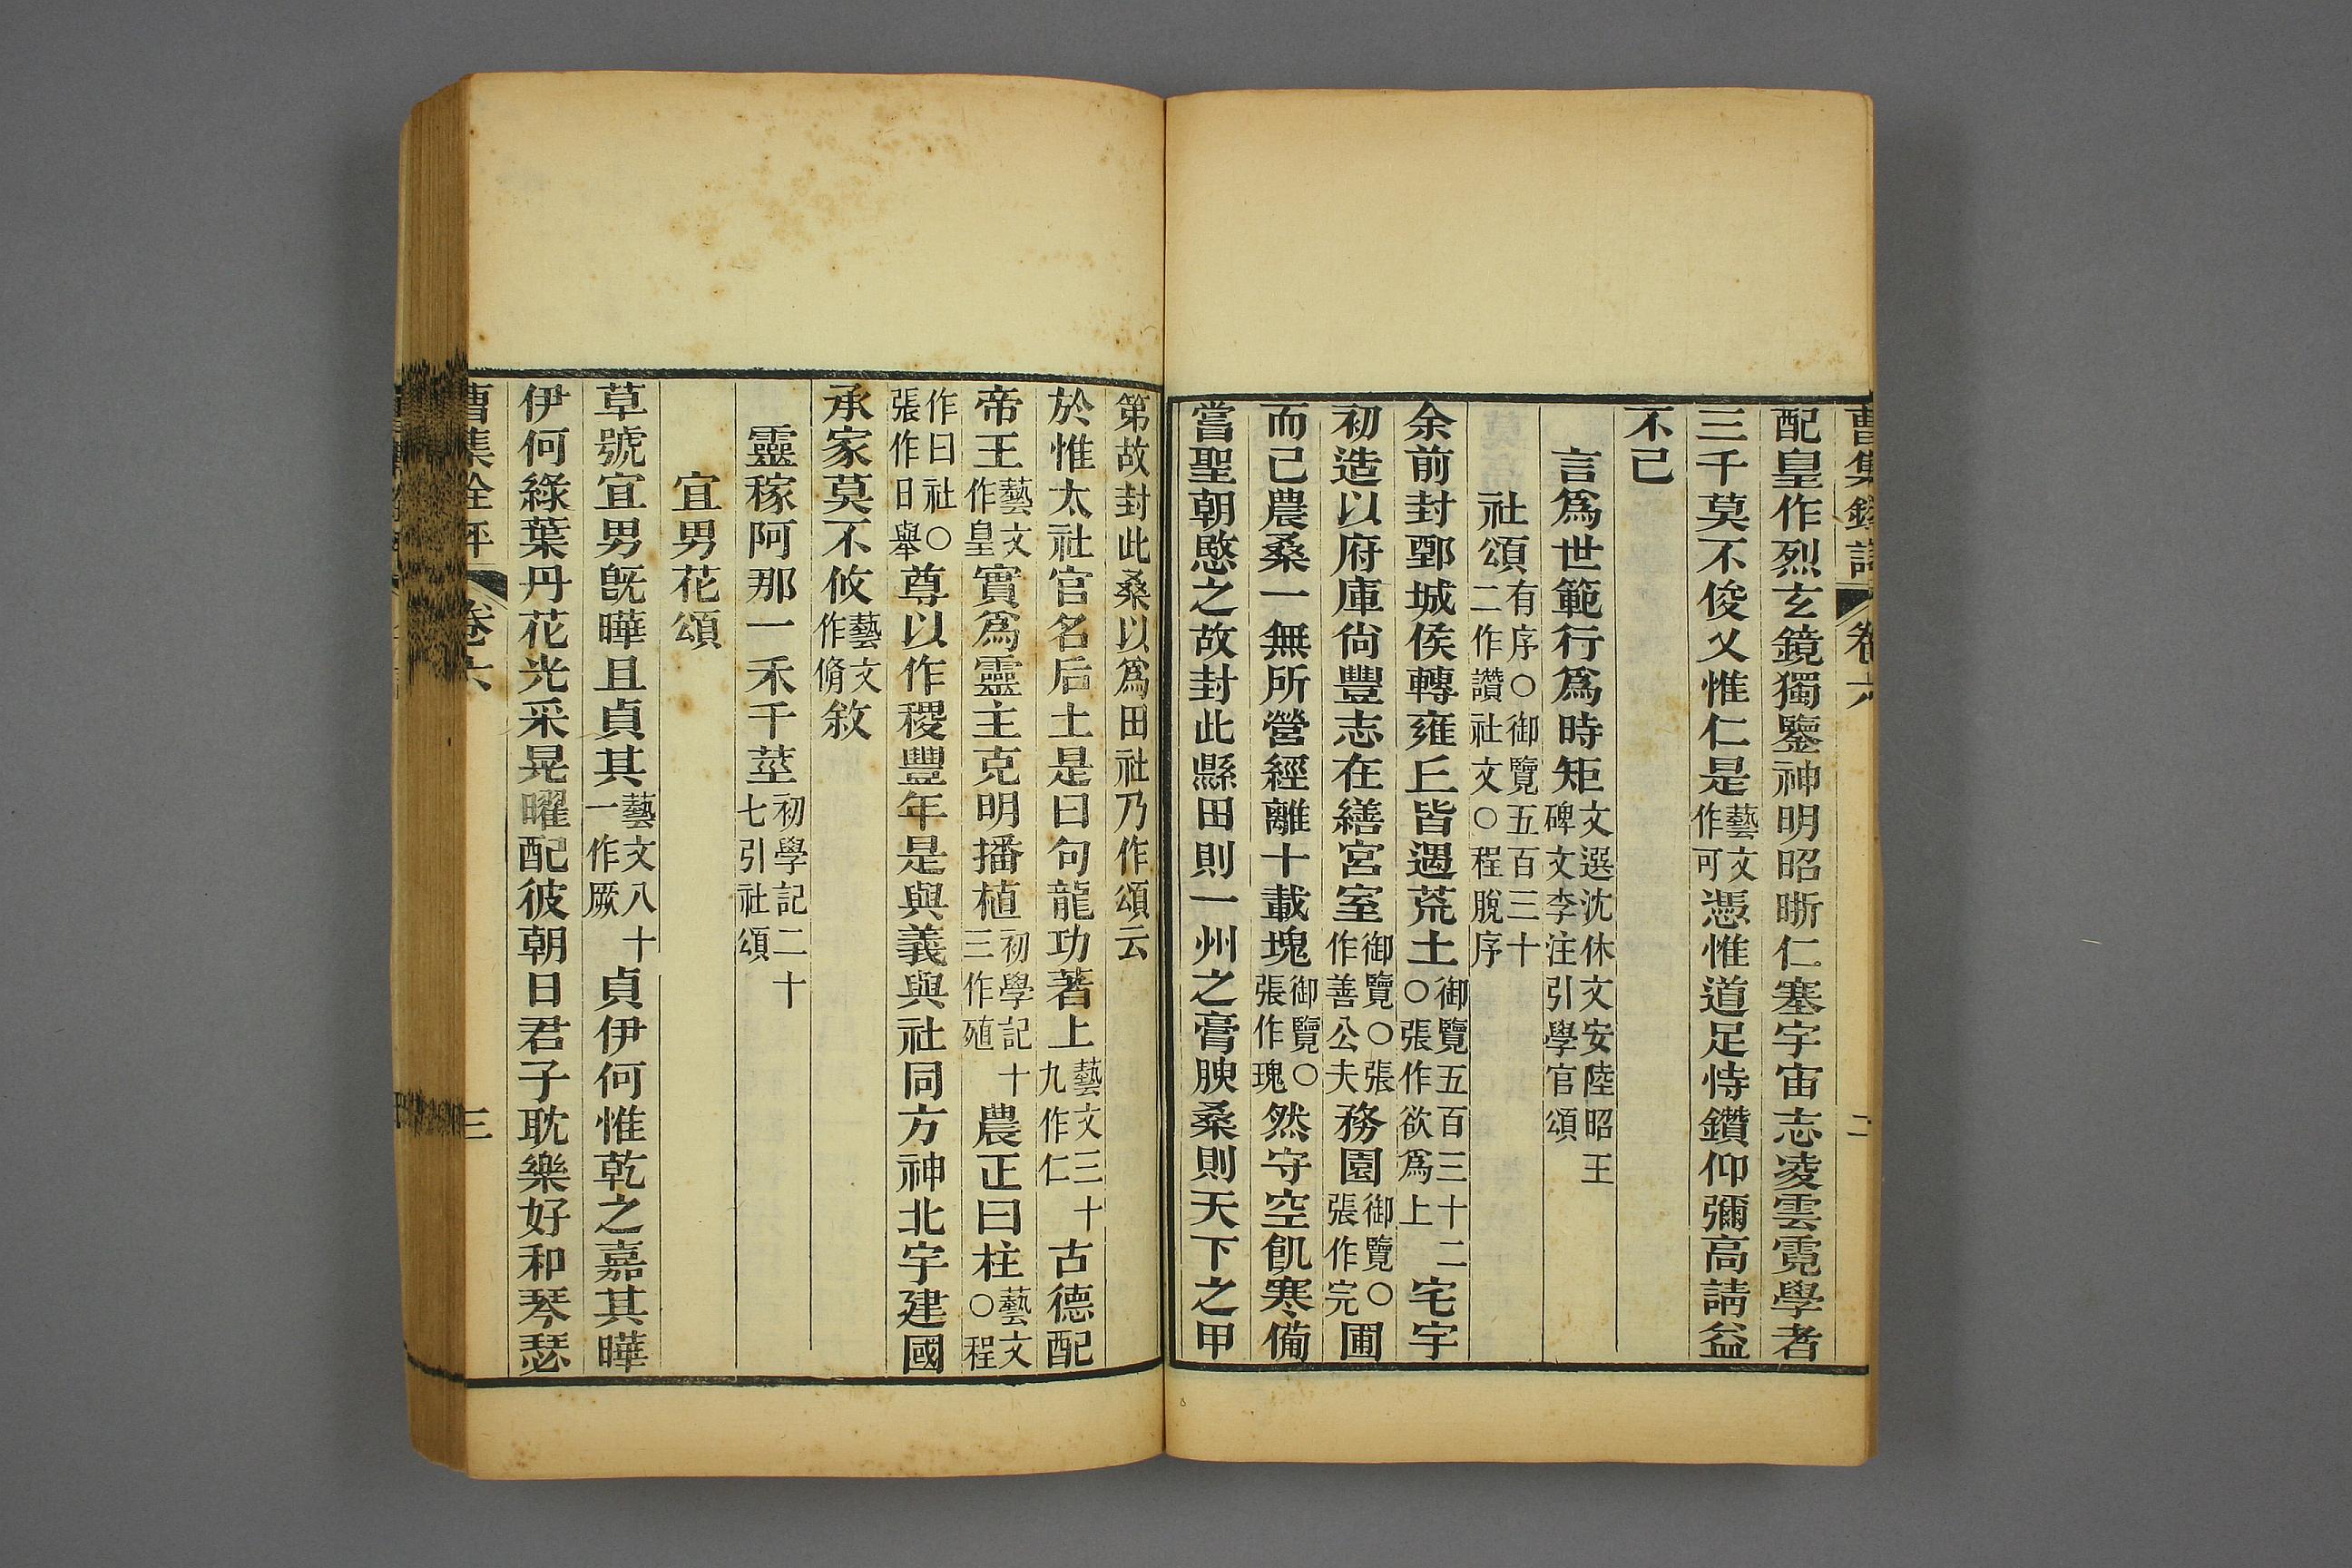 曹集銓評 卷六 二
配皇作烈玄鏡獨鑒神明昭晣仁塞宇宙志凌雲霓學者
三千莫不俊乂惟仁是藝文作可憑惟道足恃鑽仰彌高請益
不已
言爲世範行爲時矩文選沈休文安陸昭王碑文李注引學官頌
社頌有序○御覽五百三十二作讚社文○程脫序
余前封鄄城侯轉雍丘皆遇荒土御覽五百三十二○張作欲爲上宅宇
初造以府庫尙豐志在繕宮室御覽○張作善公夫務園御覽○張作完圃
而已農桑一無所營經離十載塊御覽○張作瑰然守空飢寒備
嘗聖朝愍之故封此縣田則一州之膏腴桑則天下之甲
第故封此桑以爲田社乃作頌云
於惟太社官名后土是曰句龍功著上藝文三十九作仁古德配
帝王藝文作皇實爲靈主克明播植初學記十三作殖農正曰柱藝文○程
作曰社○張作日舉尊以作稷豐年是與義與社同方神北宇建國
承家莫不攸藝文作脩敘
靈稼阿那一禾千莖初學記二十七引社頌
宜男花頌
草號宜男旣曄且貞其藝文八十一作厥貞伊何惟乾之嘉其曄
伊何綠葉丹花光采晃曜配彼朝日君子耽樂好和琴瑟
曹集銓評 卷六 三